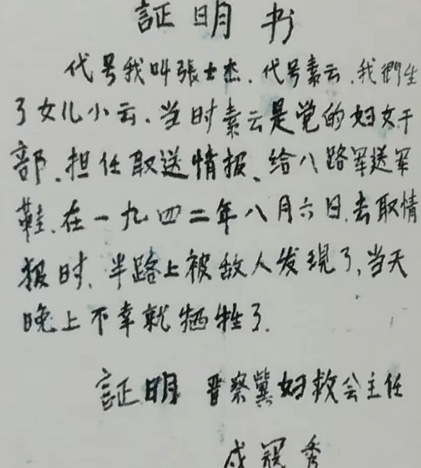 証明书
代号我叫張士杰.代号素云.我們生
了女儿小云.当时素云是党的妇女干
部.担任取送情报.给八路军送军
鞋.在一九四二年八月六日.去取情
报时.半路上被敌人发現了,当天
晚上不幸就牺牲了.
証明 晋察冀妇救会主任
戎冠秀